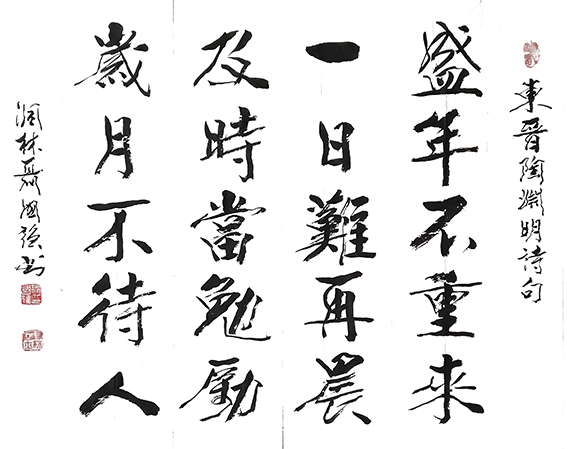 東晉陶淵明詩句
盛年不重來
一日難再晨
及時當勉勵
歲月不待人